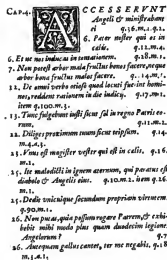 CAP.4. ACCESSERVNT
Angeli & ministrabant
ei q.56.m.2.q.1.
6. Pater noster qui es in
cælis. q.52.m.4.
6. Et ne nos inducas in tentationem. q.28.m.1.
7. Non potest arbor mala fructus bonos facere, neque
arbor bona fructus malos facere. q. 14.m.
12. De omni verbo otioso quod locuti fue-int homi-
nes, reddent rationem in die iudicij. q.17.m.1.
item q.100.m.3.
13. Tunc fulgebunt iusti sicut sol in regno Patris eo-
22. Diliges proximum tuum sicut teipsum. q.14.
m.4.
23. Vnus est magister vester qui est in cælis. q.16.
m.1.
25. Ite maledicti in ignem æternum, qui paratus est
diabolo & Angelis eius. q.10.m.2. item q.26
m.1.
25. Dedit vnicuique secundum propriam virtutem
q.90.m.1.
26. Non putas, quia possum rogare Patrem, & exhi-
bebit mihi modo plus quam duodecim legiones
Angelorum? q.7
26. Antequam gallus cantet, ter me negabis. q.18
m.3.